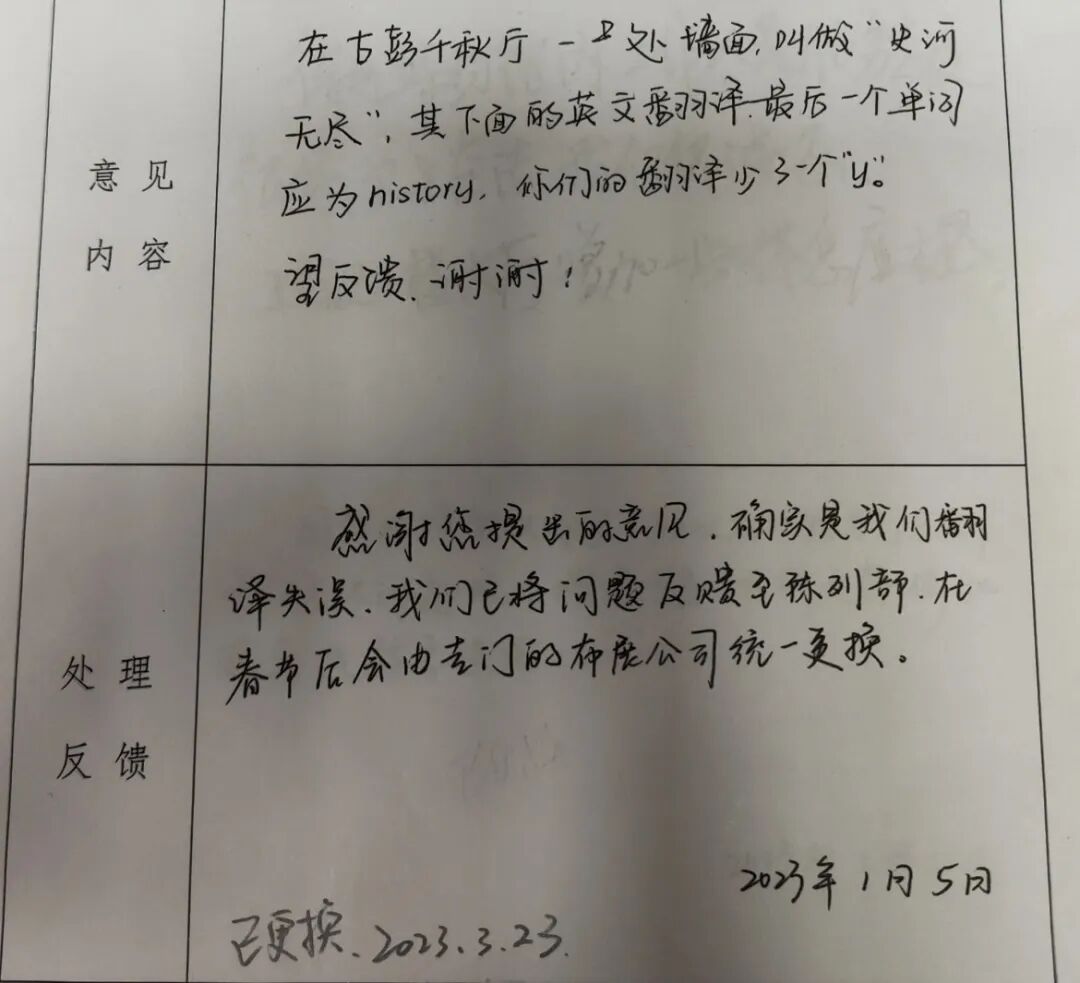 在古彭千秋厅一处墙面,叫做"史河
无尽",其下面的英文翻译最后一个单词
应为history,你们的翻译少了一个"y"。
望反馈、谢谢!
意见
内容
感谢您提出的意见,确实是我们翻
译失误、我们已将问题反馈至陈列部,在
春节后会由专门的布展公司统一更换。
处理
反馈
2023年1月5日
已更换、2023.3.23.